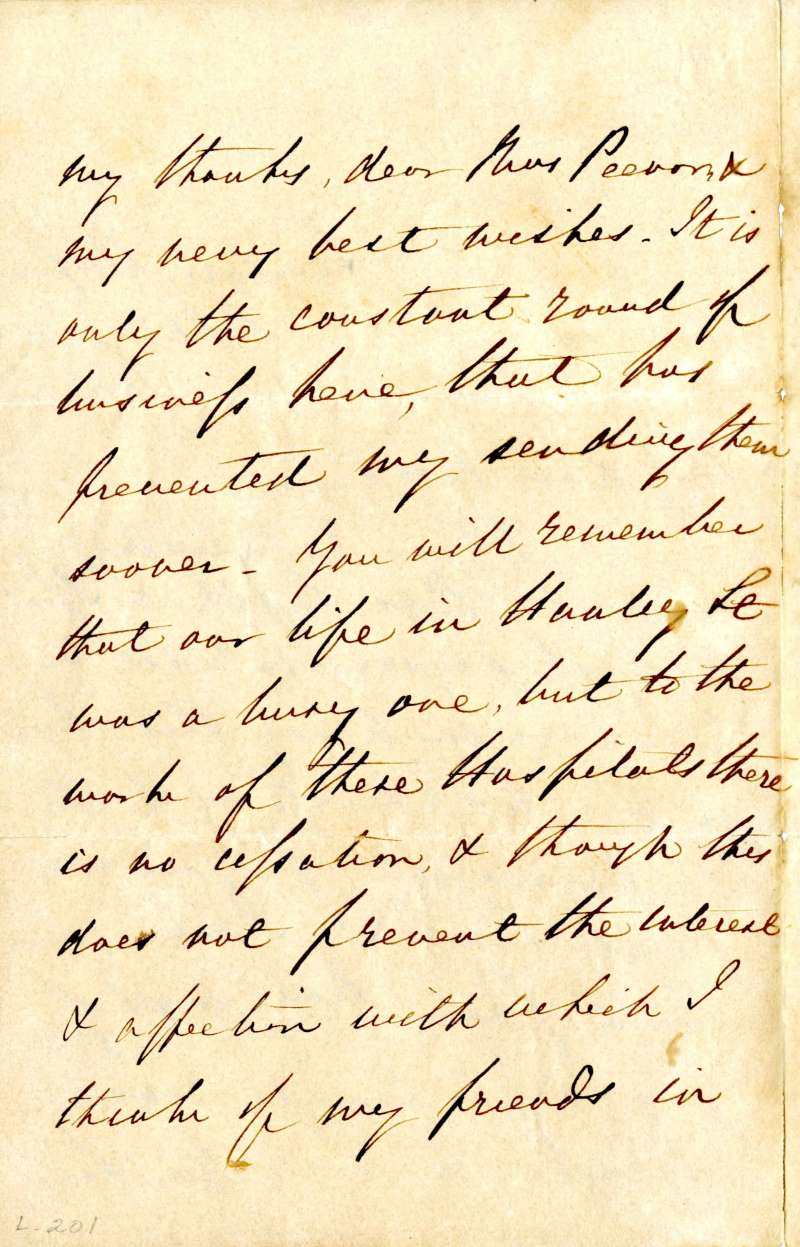 my thanks, dear Mrs Peevor, &
my very best wishes - It is
only the constant round of
business here, that has
prevented my sending them
sooner - You will remember
that our life in Harley St
was a busy one, but to the
work of these Hospitals there
is no cessation, & though this
does not prevent the interest
& affection with which I
think of my friends in
L-201